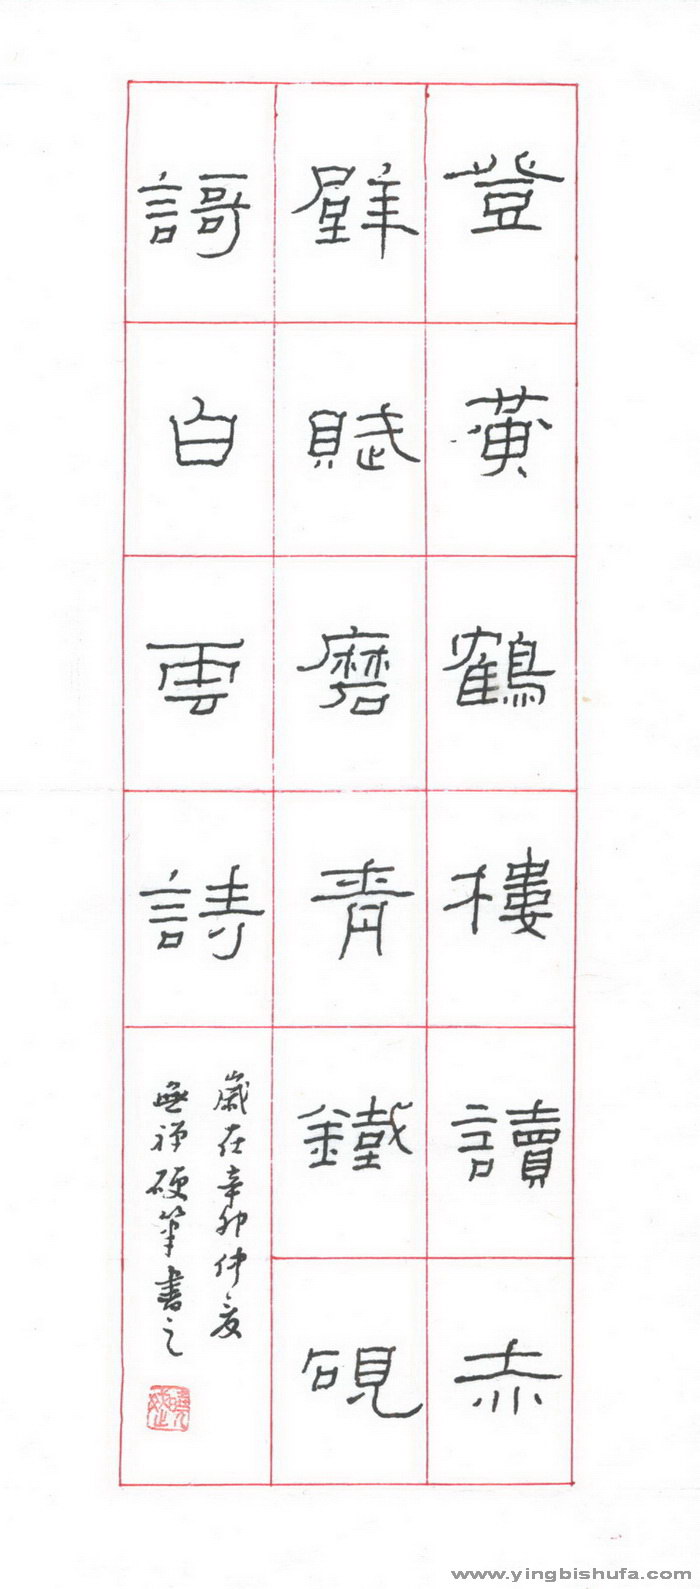 登黄鶴樓讀赤
壁賦磨青鐵硯
謌白雲詩
歲在辛卯仲夏
無禅硬筆書之
www.yingbishufa.com